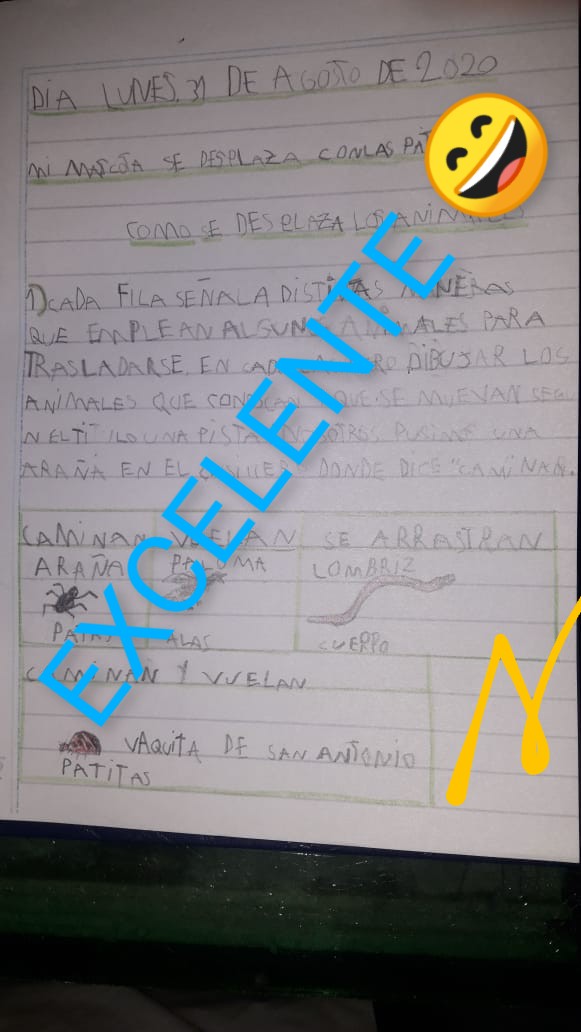 DIA LUNES, 31 DE AGOSTO DE 2020
MI MASCOTA SE DESPLAZA CON LAS PAT
COMO SE DESPLAZA LOS ANIMALES
1) CADA FILA SEÑALA DISTINTAS MANERAS
QUE EMPLEAN ALGUNOS ANIMALES PARA
TRASLADARSE. EN CADA DIBUJAR LOS
ANIMALES QUE CONOZCAN QUE SE MUEVAN SEGU
N EL UNA PISTA NOSOTROS PUSIMOS UNA
ARAÑA EN EL DONDE DICE "CAMINAN.
CAMINAN VUELAN SE ARRASTRAN
ARAÑA PALOMA LOMBRIZ
PATAS ALAS CUERPO
CAMINAN Y VUELAN
VAQUITA DE SAN ANTONIO
PATITAS
EXCELENTE